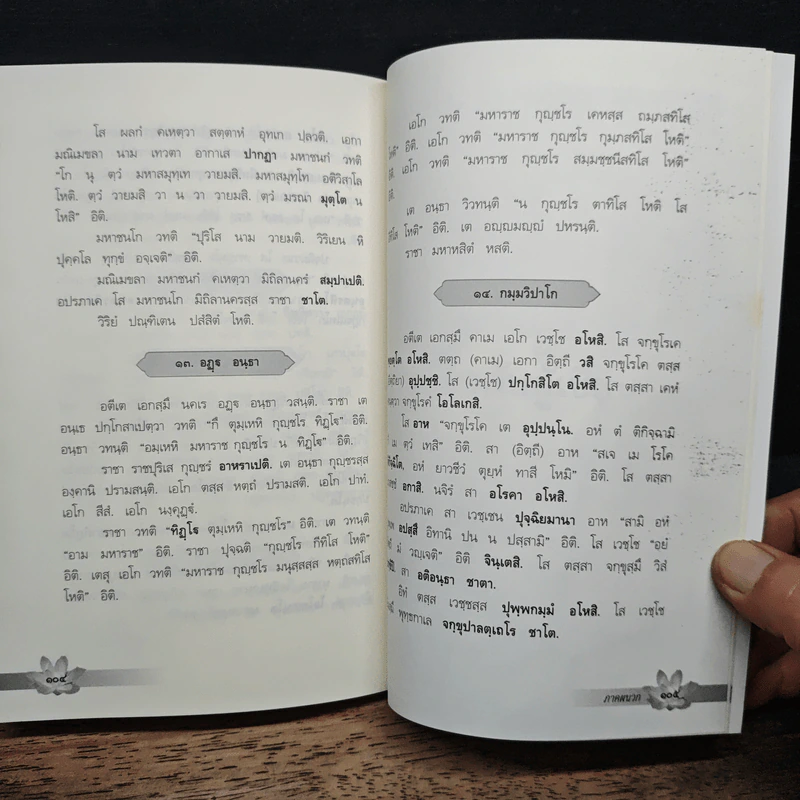 โส ผลกํ คเหตฺวา สตฺตาหํ อุทเก ปฺลวติ. เอกา
มณิเมขลา นาม เทวตา อากาเส ปากฏา มหาชนกํ วทติ
“โก นุ ตฺวํ มหาสมุทฺเท วายมสิ. มหาสมุทฺโท อติวิสาโล
โหติ. ตฺวํ วายมสิ วา น วา วายมสิ. ตฺวํ มรณา มุตฺโต น
โหสิ” อิติ.
มหาชนโก วทติ “ปุริโส นาม วายมติ. วิริเยน หิ
ปุคฺคโล ทุกฺขํ อจฺเจติ” อิติ.
มณิเมขลา มหาชนกํ คเหตฺวา มิถิลานครํ สมฺปาเปติ.
อปรภาเค โส มหาชนโก มิถิลานครสฺส ราชา ชาโต.
วิริยํ ปณฺฑิเตน ปสํสิตํ โหติ.
๑๓. อฏฺฐ อนฺธา
อตีเต เอกสฺมึ นคเร อฏฺฐ อนฺธา วสนฺติ. ราชา เต
อนฺเธ ปกฺโกสาเปตฺวา วทติ “กึ ตุมฺเหหิ กุญฺชโร ทิฏฺโฐ” อิติ.
อนฺธา วทนฺติ “อมฺเหหิ มหาราช กุญฺชโร น ทิฏฺโฐ” อิติ.
ราชา ราชปุริเส กุญฺชรํ อาหราเปติ. เต อนฺธา กุญฺชรสฺส
องฺคานิ ปรามสนฺติ. เอโก ตสฺส หตฺถํ ปรามสติ. เอโก ปาทํ.
เอโก สีสํ. เอโก นงฺคุฏฺฐํ.
ราชา วทติ “ทิฏฺโฐ ตุมฺเหหิ กุญฺชโร” อิติ. เต วทนฺติ
“อาม มหาราช” อิติ. ราชา ปุจฺฉติ “กุญฺชโร กีทิโส โหติ”
อิติ. เตสุ เอโก วทติ “มหาราช กุญฺชโร มนุสฺสสฺส หตฺถสทิโส
โหติ” อิติ.
๑๐๔
เอโก วทติ “มหาราช กุญฺชโร เคหสฺส ถมฺภสทิโส
อิติ. เอโก วทติ “มหาราช กุญฺชโร กุมฺภสทิโส โหติ”
เอโก วทติ “มหาราช กุญฺชโร สมฺมชฺชนีสทิโส โหติ”
เต อนฺธา วิวทนฺติ “น กุญฺชโร ตาทิโส โหติ โส
โหติ” อิติ. เต อญฺญมญฺญํ ปหรนฺติ.
ราชา มหาหสิตํ หสติ.
๑๔. กมฺมวิปาโก
อตีเต เอกสฺมึ คาเม เอโก เวชฺโช อโหสิ. โส จกฺขุโรเค
อโหสิ. ตตฺถ (คาเม) เอกา อิตฺถี วสิ จกฺขุโรโค ตสฺส
อุปฺปชฺชิ. โส (เวชฺโช) ปกฺโกสิโต อโหสิ. โส ตสฺสา เคหํ
จกฺขุโรคํ โอโลเกสิ.
โส อาห “จกฺขุโรโค เต อุปฺปนฺโน. อหํ ตํ ติกิจฺฉามิ
เม ตฺวํ เทสิ” อิติ. สา (อิตฺถี) อาห “สเจ เม โรโค
อหํ ยาวชีวํ ตุยฺหํ ทาสี โหมิ” อิติ. โส ตสฺสา
อกาสิ. นจิรํ สา อโรคา อโหสิ.
อปรภาเค สา เวชฺเชน ปุจฺฉิยมานา อาห “สามิ อหํ
อปสฺสึ อิทานิ ปน น ปสฺสามิ” อิติ. โส เวชฺโช “อยํ
มํ วญฺเจติ” อิติ จินฺเตสิ. โส ตสฺสา จกฺขุสฺมึ วิสํ
สา อติอนฺธา ชาตา.
อิทํ ตสฺส เวชฺชสฺส ปุพฺพกมฺมํ อโหสิ. โส เวชฺโช
พุทฺธกาเล จกฺขุปาลตฺเถโร ชาโต.
ภาคผนวก ๑๐๕